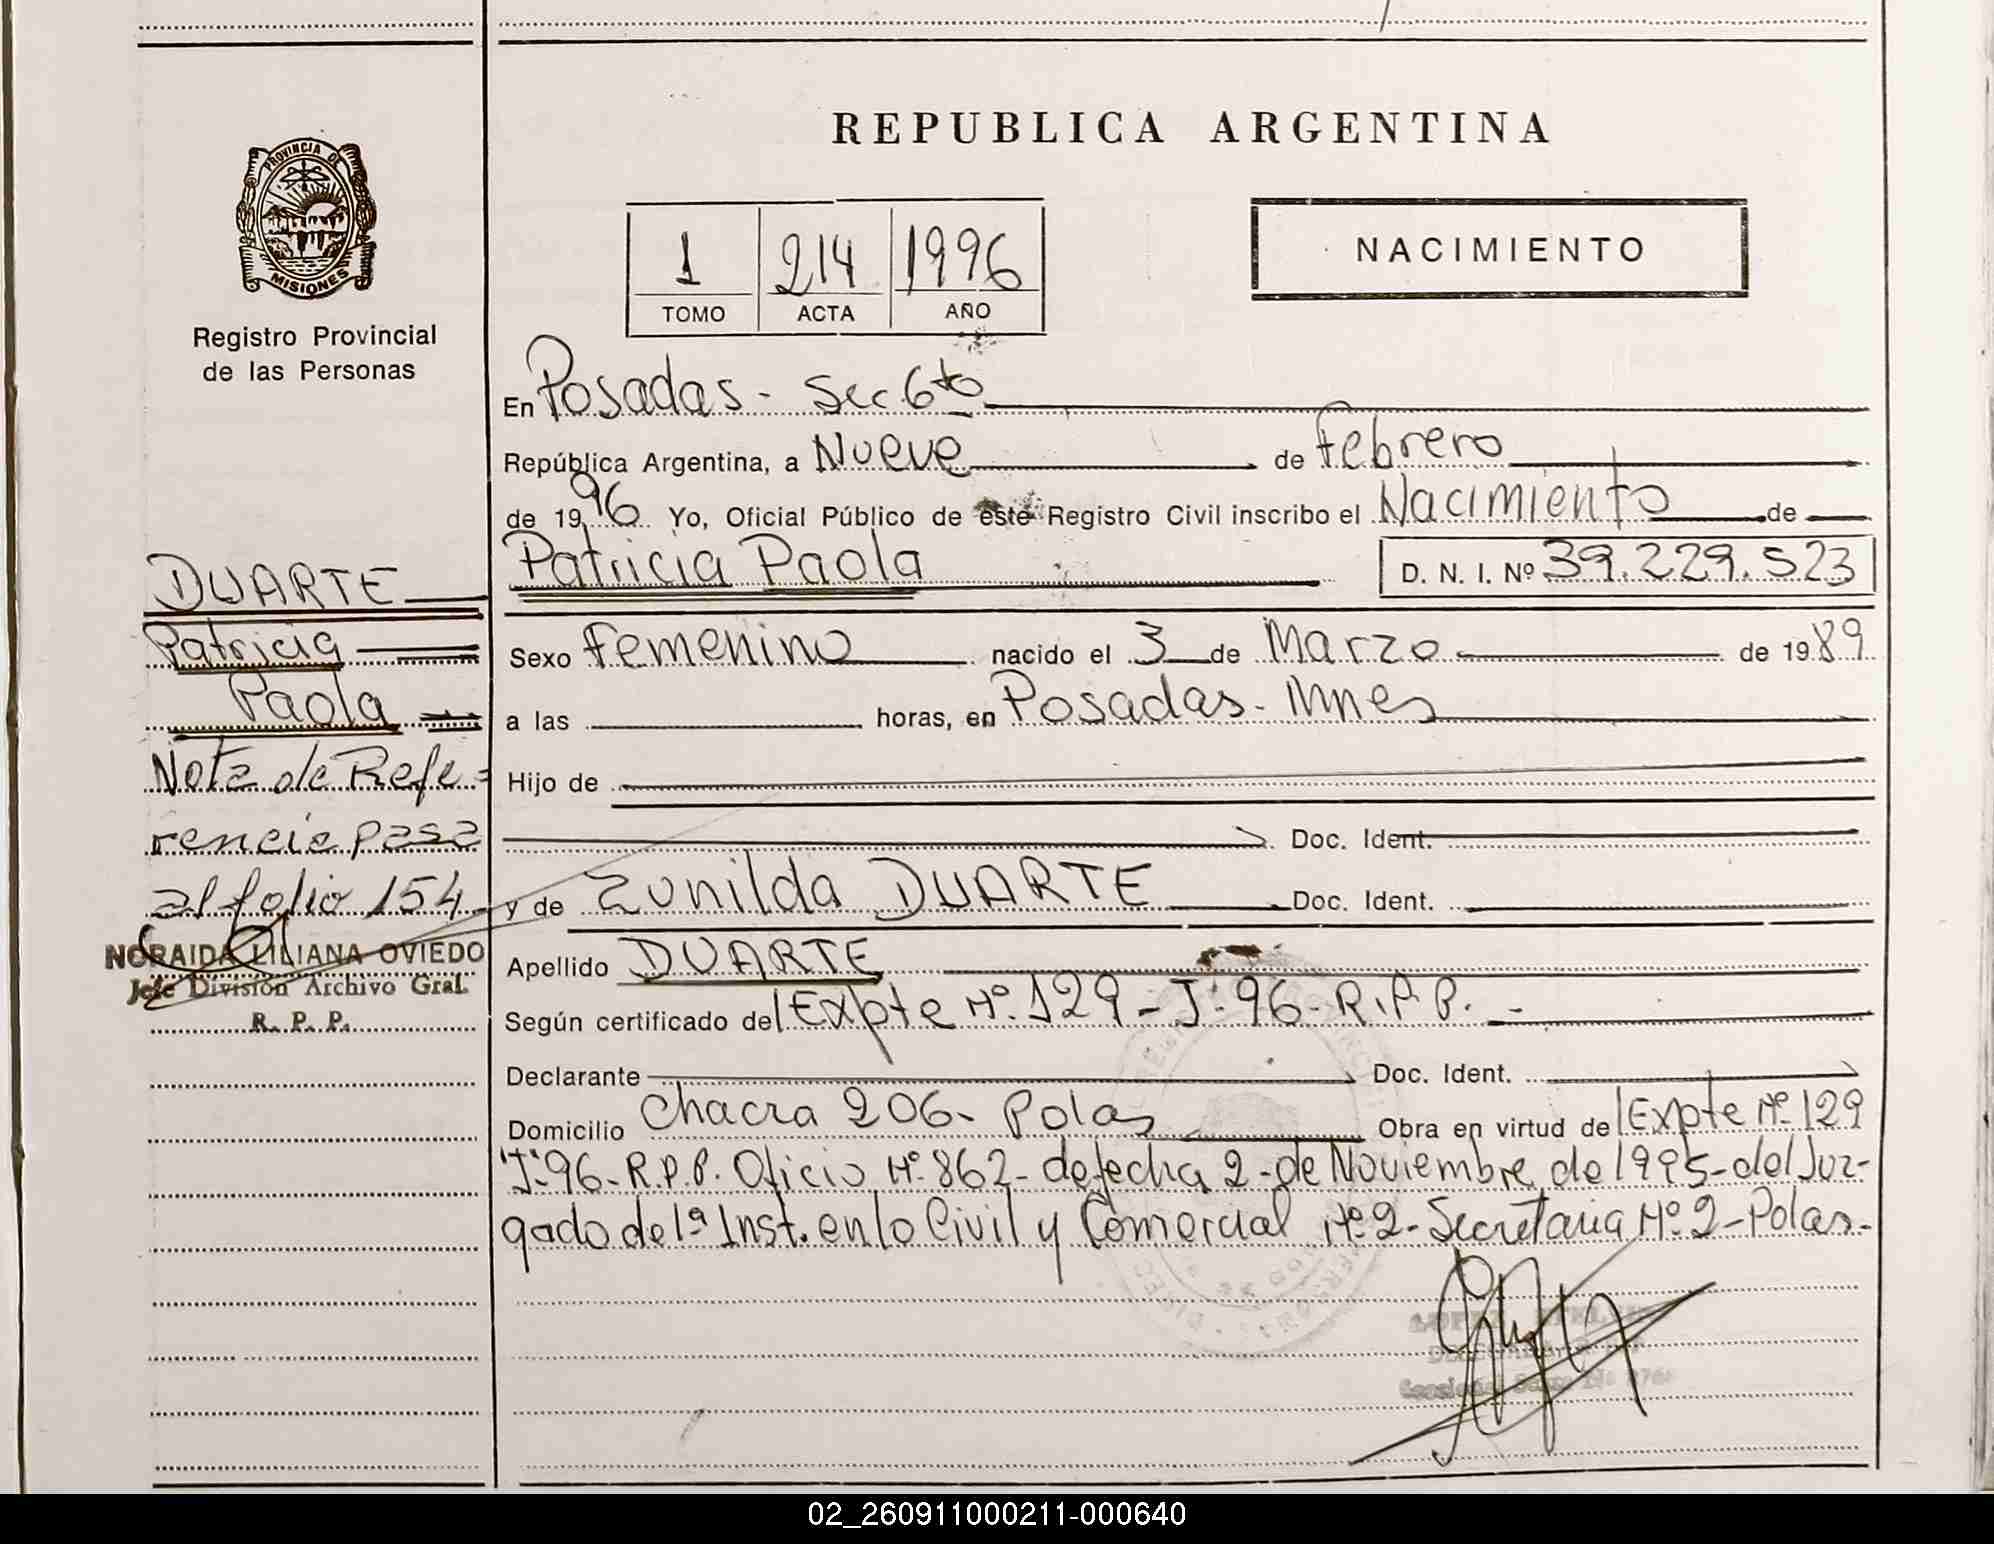 REPUBLICA ARGENTINA
PROVINCIA DE
MISIONES
Registro Provincial
de las Personas
1 214 1996
TOMO ACTA AÑO
NACIMIENTO
En Posadas - Sec 6to
República Argentina, a Nueve de Febrero
de 1996 Yo, Oficial Público de este Registro Civil inscribo el Nacimiento de
Patricia Paola D. N. I. Nº 39.229.523
DUARTE
Patricia
Paola
Nota de Refe=
rencia pasa
al folio 154
NORAIDA LILIANA OVIEDO
Jefe División Archivo Gral.
R. P. P.
Sexo Femenino nacido el 3 de Marzo de 1989
a las horas, en Posadas - Mnes
Hijo de
Doc. Ident.
y de Zunilda DUARTE Doc. Ident.
Apellido DUARTE
Según certificado del Expte Nº 129 - J - 96 - R.P.P. -
Declarante Doc. Ident.
Domicilio Chacra 206 - Pdas Obra en virtud del Expte Nº 129
"J" 96 - R.P.P. Oficio Nº 862 - de fecha 2 - de Noviembre de 1995 - del Juz-
gado de 1ª Inst. en lo Civil y Comercial Nº 2 - Secretaria Nº 2 - Pdas -
02_260911000211-000640